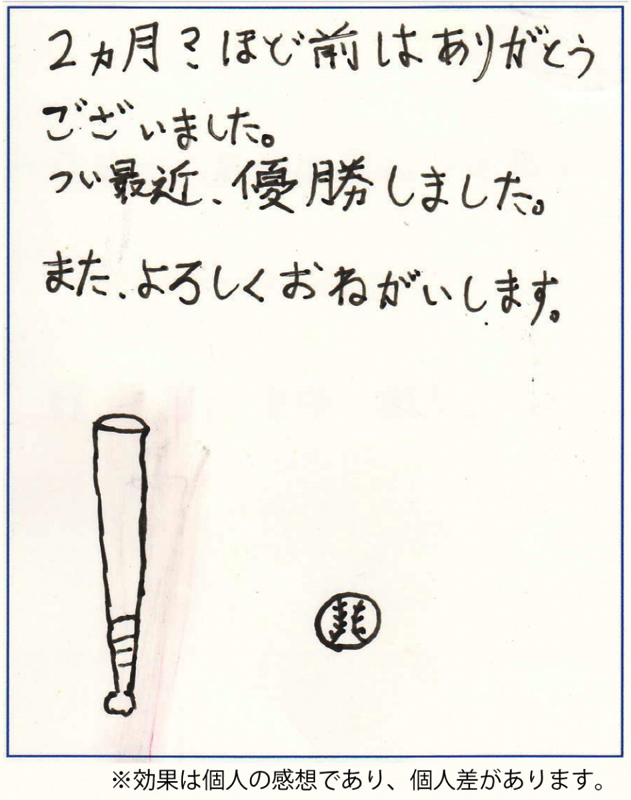 2ヵ月?ほど前はありがとう
ございました。
つい最近、優勝しました。
また、よろしくおねがいします。
※効果は個人の感想であり、個人差があります。